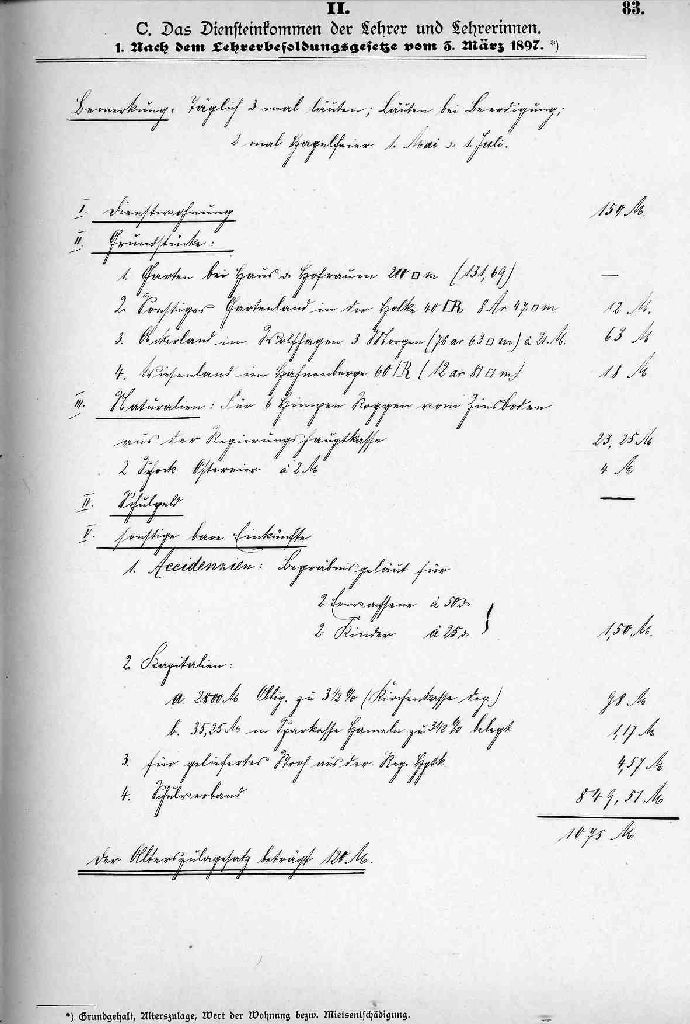 II. 83.
C. Das Diensteinkommen der Lehrer und Lehrerinnen.
1. Nach dem Lehrerbesoldungsgesetze vom 3. März 1897. *)
Bemerkung: Täglich 3 mal läuten; Läuten bei Beerdigung;
2 mal Hagelfeier 1. Mai u. 1. Juli.
I. Dienstwohnung 150 M
II. Grundstücke:
1. Garten bei Haus u. Hofraum 200 □ m (131,69) —
2. Sonstiges Gartenland in der 40 □R 8 Ar 47 □m 12 M.
3. Ackerland im Wolfhagen 3 Morgen (76 ar 63 □ m) à 21 M. 63 M
4. Wiesenland im Hahnenberge 60 □R (12 ar 81 □ m) 18 M
III. Naturalien: Für 6 Himpen Roggen vom Zinsboden
aus der Regierungshauptkasse 23,25 M
2 Schock Ostereier à 2 M 4 M
IV. Schulgeld —
V. sonstige bare Einkünfte
1. Accidenzien: Begräbnisgeläut für
2 Erwachsene à 50 d.
2 Kinder à 25 d. } 1,50 M.
2. Kapitalien:
a. 2800 M Oblig. zu 3½ % (Kirchenkasse dep.) 98 M
b. 35,25 M in Sparkasse Hameln zu 3⅓ % belegt 1,17 M
3. für geliefertes Stroh aus der Reg. Hptk. 4,57 M
4. Schulverband 849,51 M
1075 M
Der Alterszulagesatz beträgt 120 M.
*) Grundgehalt, Alterszulage, Wert der Wohnung bezw. Mietsentschädigung.